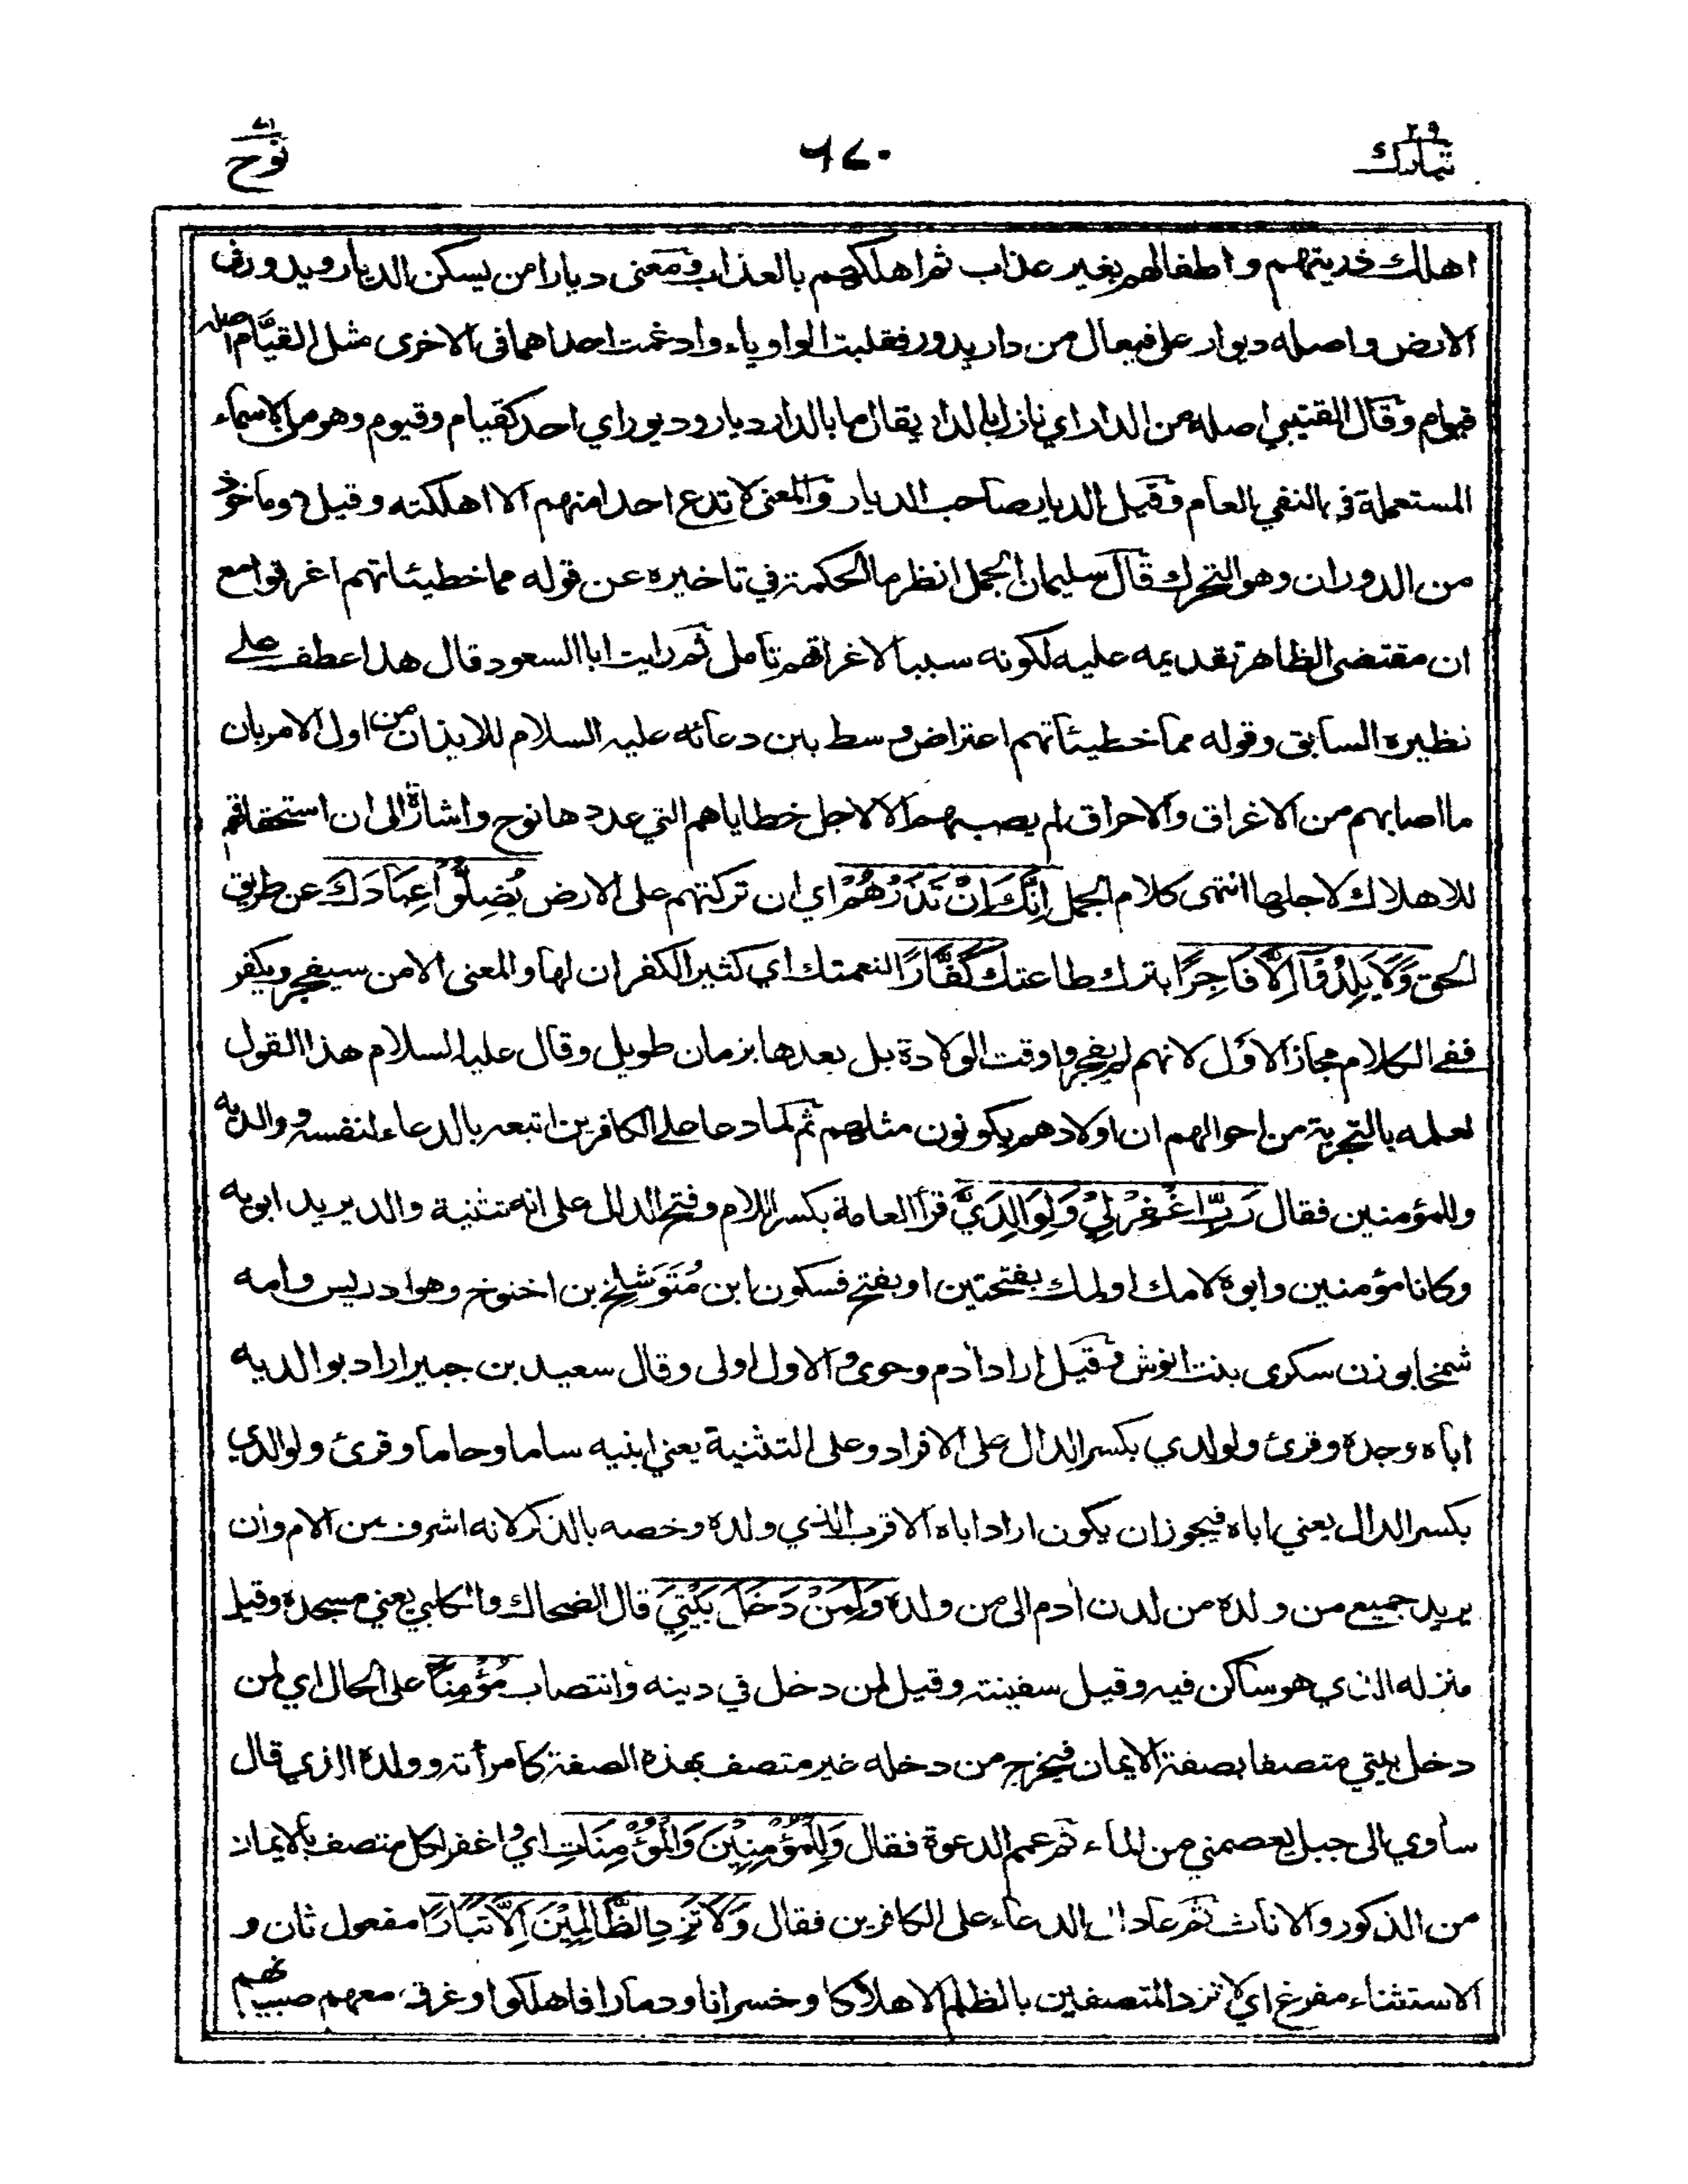 تبارك ٢٩
٦٧٠
نوح ٧١
اهلك ذريتهم واطفالهم بغير عذاب ثم اهلكهم بالعذاب ومعنى ديارا من يسكن الديار ويدور في
الارض واصله ديوار على فيعال من دار يدور فقلبت الواو ياء وادغمت احداهما في الاخرى مثل القيَّام اصله
قيوام وقال القتيبي اصله من الدار اي نازل بالدار يقال ما بالدار ديار وديور اي احد كقيام وقيوم وهو من الاسماء
المستعملة في النفي العام وقيل الديار صاحب الديار والمعنى لا تدع احدا منهم الا اهلكته وقيل وماخوذ
من الدوران وهو التحرك قال سليمان الجمل انظر ما الحكمة في تاخيره عن قوله مما خطيئاتهم اغرقوا مع
ان مقتضى الظاهر تقديمه عليه لكونه سببا لاغراقهم تأمل ثم رايت ابا السعود قال هذا عطف على
نظيره السابق وقوله مما خطيئاتهم اعتراض وسط بين دعائه عليه السلام للايذان من اول الامر بان
ما اصابهم من الاغراق والاحراق لم يصبهم الا لاجل خطاياهم التي عددها نوح واشارة الى ان استحقاقهم
للاهلاك لاجلها انتهى كلام الجمل اِنَّكَ اِنْ تَذَرْهُمْ اي ان تركتهم على الارض يُضِلُّوْا عِبَادَكَ عن طريق
الحق وَلَا يَلِدُوْآ اِلَّا فَاجِرًا بترك طاعتك كَفَّارًا لنعمتك اي كثير الكفران لها والمعنى الا من سيفجر ويكفر
ففي الكلام مجاز الاوّل لانهم لم يفجروا وقت الولادة بل بعدها بزمان طويل وقال عليه السلام هذا القول
لعلمه بالتجربة من احوالهم ان اولادهم يكونون مثلهم ثم لما دعا على الكافرين اتبعه بالدعاء لنفسه ووالديه
وللمؤمنين فقال رَبِّ اغْفِرْ لِيْ وَلِوَالِدَيَّ قرأ العامة بكسر اللام وفتح الدال على انه تثنية والد يريد ابويه
وكانا مؤمنين وابوه لامك او لمك بفتحتين او بفتح فسكون ابن مُتَوَشْلِخ بن اخنوخ وهو ادريس وامه
شمخا بوزن سكرى بنت انوش وقيل اراد أدم وحوى والاول اولى وقال سعيد بن جبير اراد بوالديه
اباه وجده وقرئ ولولدي بكسر الدال على الافراد وعلى التثنية يعني ابنيه ساما وحاما وقرئ ولوالدي
بكسر الدال يعني اباه فيجوز ان يكون اراد اباه الاقرب الذي ولده وخصه بالذكر لانه اشرف من الام وان
يريد جميع من ولده من لدن أدم الى من ولده وَلِمَنْ دَخَلَ بَيْتِيَ قال الضحاك والكلبي يعني مسجده وقيل
منزله الذي هو ساكن فيه وقيل سفينته وقيل لمن دخل في دينه وانتصاب مُؤْمِنًا على الحال اي لمن
دخل بيتي متصفا بصفة الايمان فيخرج من دخله غير متصف بهذه الصفة كامرأته وولده الذي قال
سأوي الى جبل يعصمني من الماء ثم عمم الدعوة فقال وَلِلْمُؤْمِنِيْنَ وَالْمُؤْمِنَاتِ اي واغفر لكل متصف بالايمان
من الذكور والاناث ثم عاد الى الدعاء على الكافرين فقال وَلَا تَزِدِ الظَّالِمِيْنَ اِلَّا تَبَارًا مفعول ثان و
الاستثناء مفرغ اي لا تزد المتصفين بالظلم الا هلاكا وخسرانا ودمارا فاهلكوا وغرق معهم صبيانهم